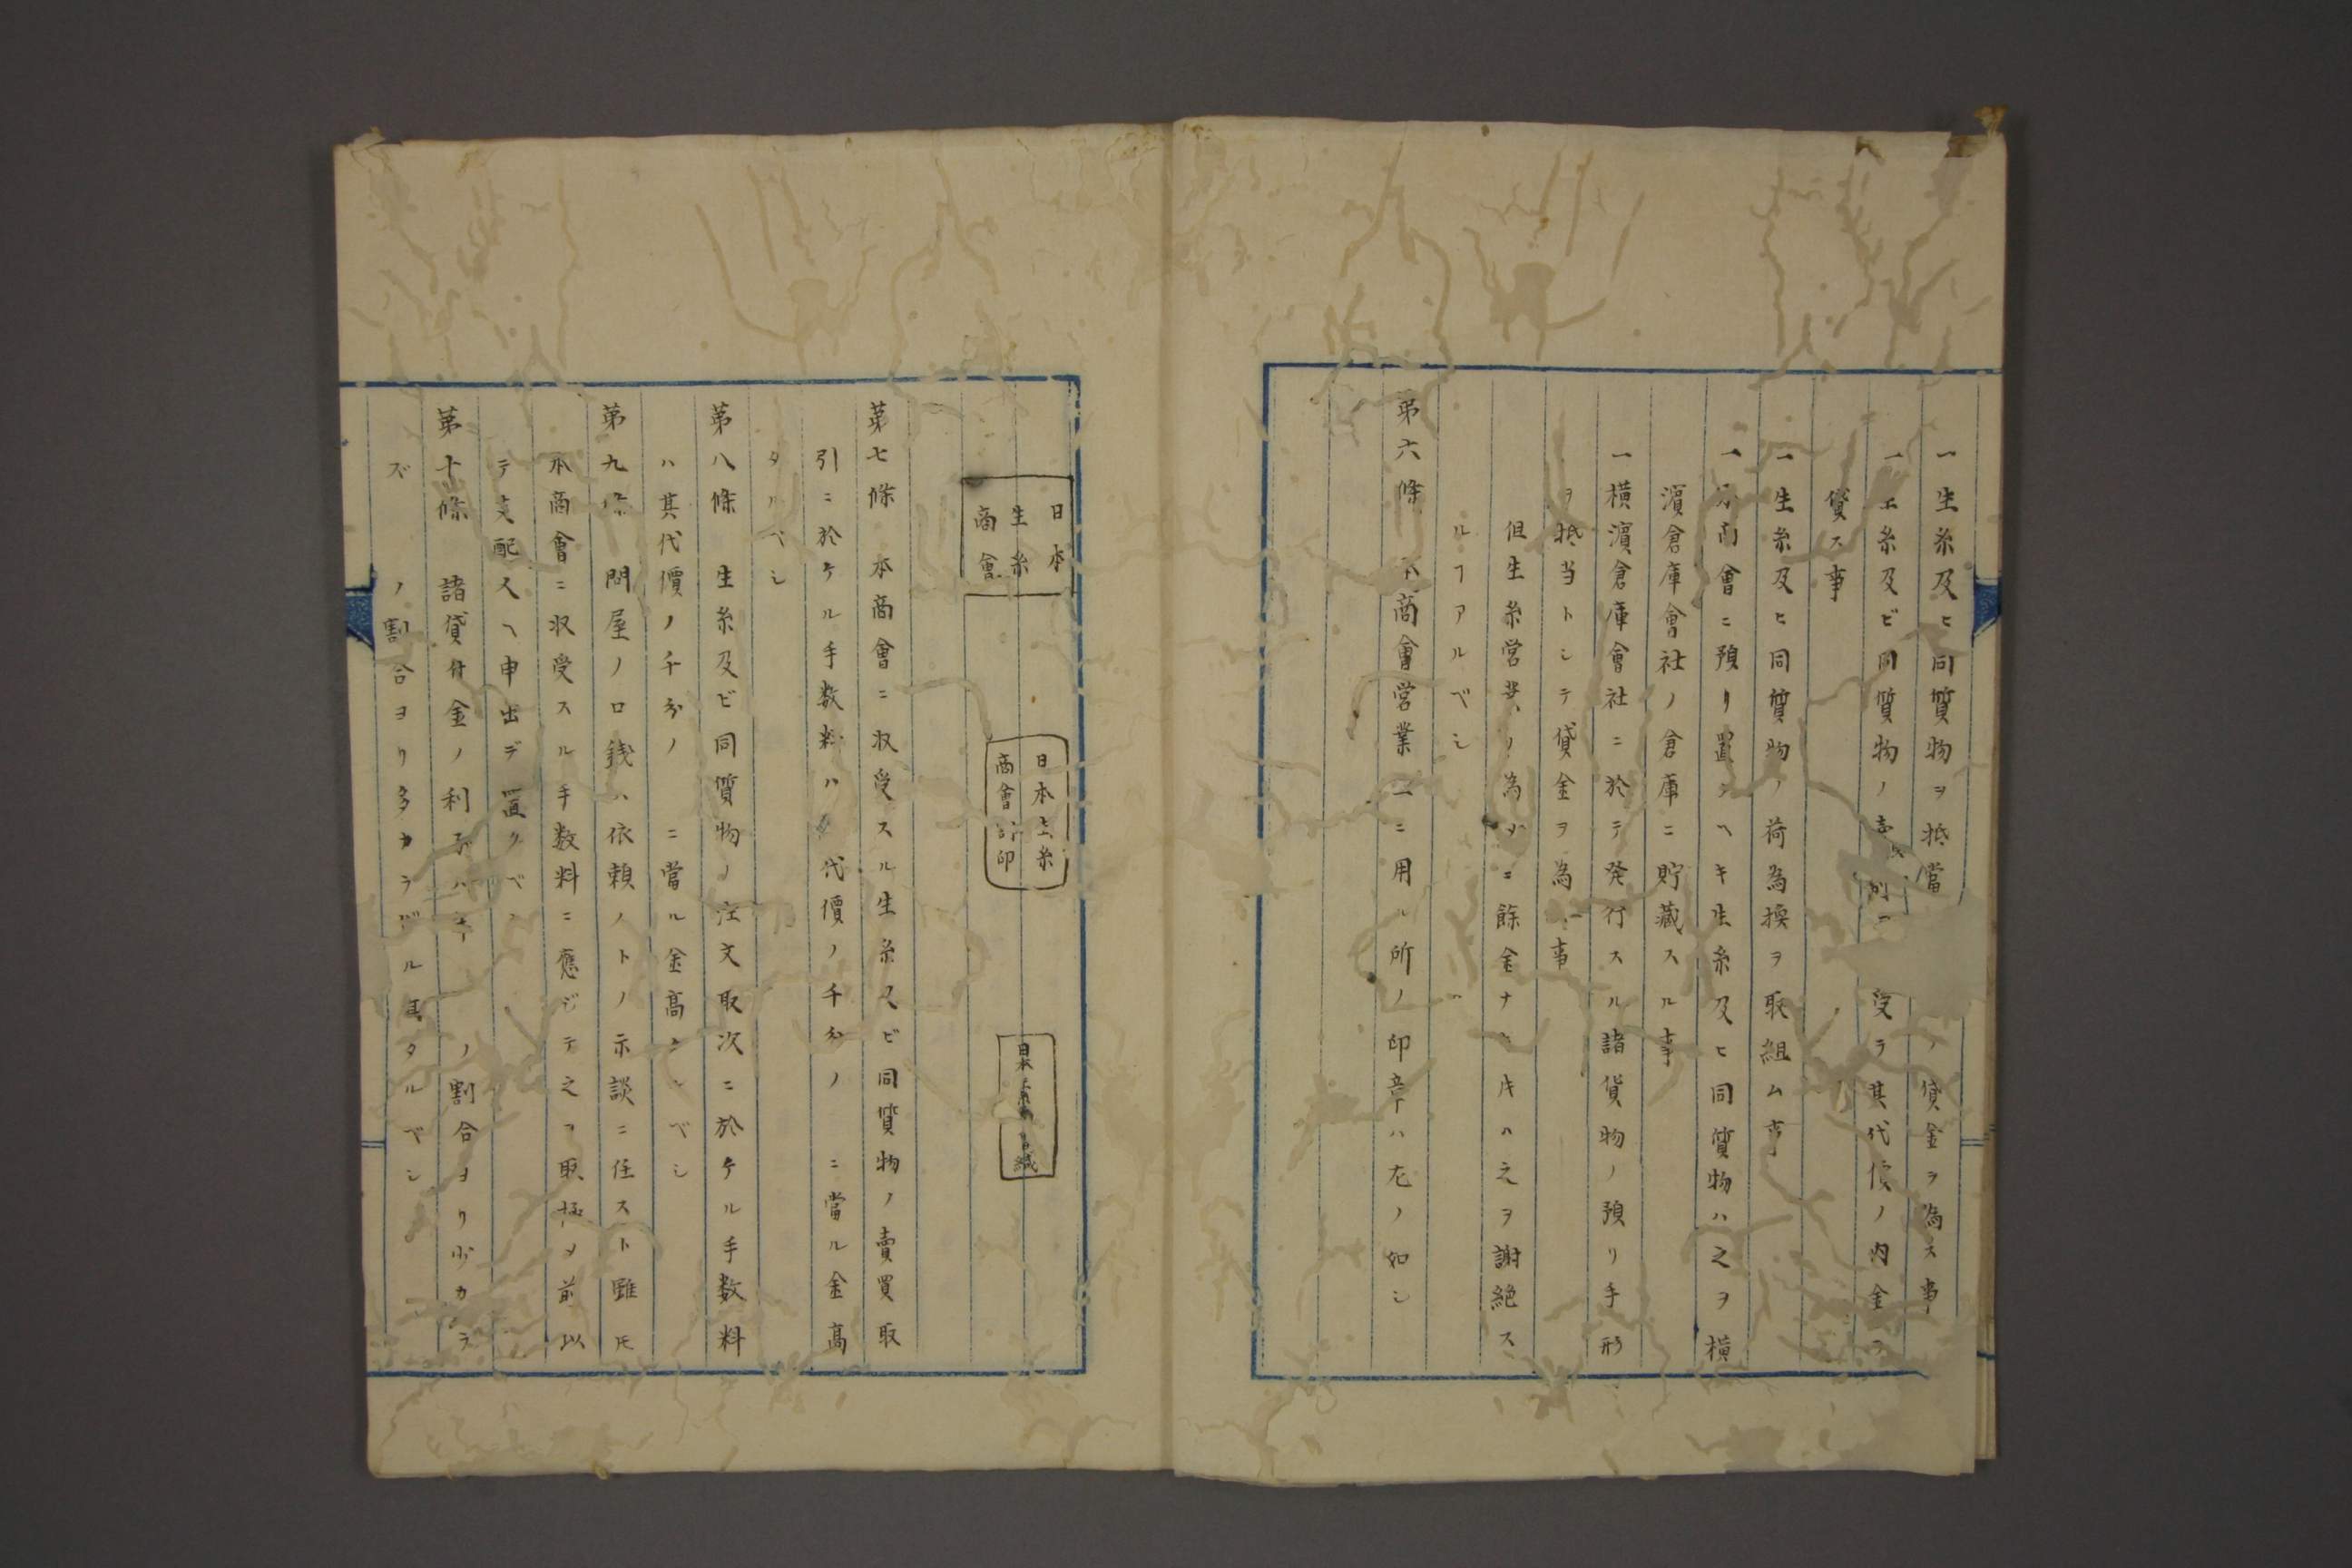 一生糸及ヒ同質物ヲ抵當 ノ貸金ヲ為ス事
一生糸及ビ同質物ノ 受ラ其代價ノ内金ヲ
貸ス事
一生糸及ヒ同質物ノ荷為換ヲ取組ム事
一本商會ニ預リ置クヘキ生糸及ヒ同質物ハ之ヲ横
濵倉庫會社ノ倉庫ニ貯藏スル事
一横濵倉庫會社ニ於テ発行スル諸貨物ノ預リ手形
ヲ抵当トシテ貸金ヲ為 事
但生糸営業ノ為メニ餘金ナ キハ之ヲ謝絶ス
ルヿアルベシ
第六條 本商會営業上ニ用ル所ノ印章ハ左ノ如シ
日本
生糸
商會
日本生糸
商會 印
日本
第七條 本商會ニ収受スル生糸及ビ同質物ノ賣買取
引ニ於ケル手数料ハ 代價ノ千分ノ ニ當ル金髙
タルベシ
第八條 生糸及ビ同質物ノ注文取次ニ於ケル手数料
ハ其代價ノ千分ノ ニ當ル金髙 ベシ
第九條 問屋ノ口銭ハ依頼 ノトノ示談ニ任スト雖𪜈
本商會ニ収受スル手数料ニ應ジテ之ヲ取極メ前以
テ支配人ヘ申出デ置クベシ
第十條 諸貸付金ノ利子ハ ノ割合ヨリ少カラ
ズ ノ割合ヨリ多カラザル タルベシ